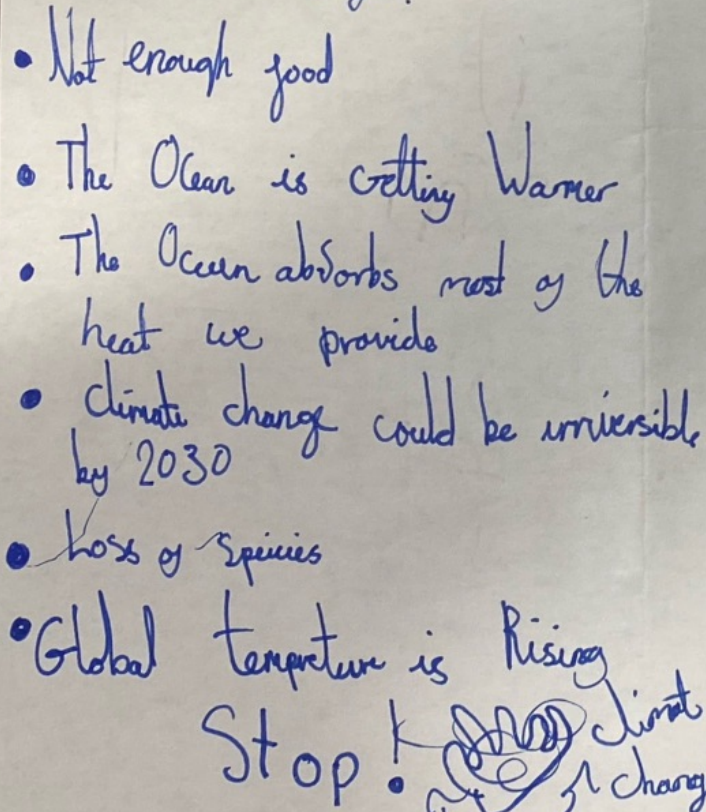 • Not enough food
• The Ocean is Getting Warmer
• The Ocean absorbs most of the
heat we provide
• climate change could be irriversible
by 2030
• Loss of Species
• Global tempreture is Rising
Stop! climat
chang